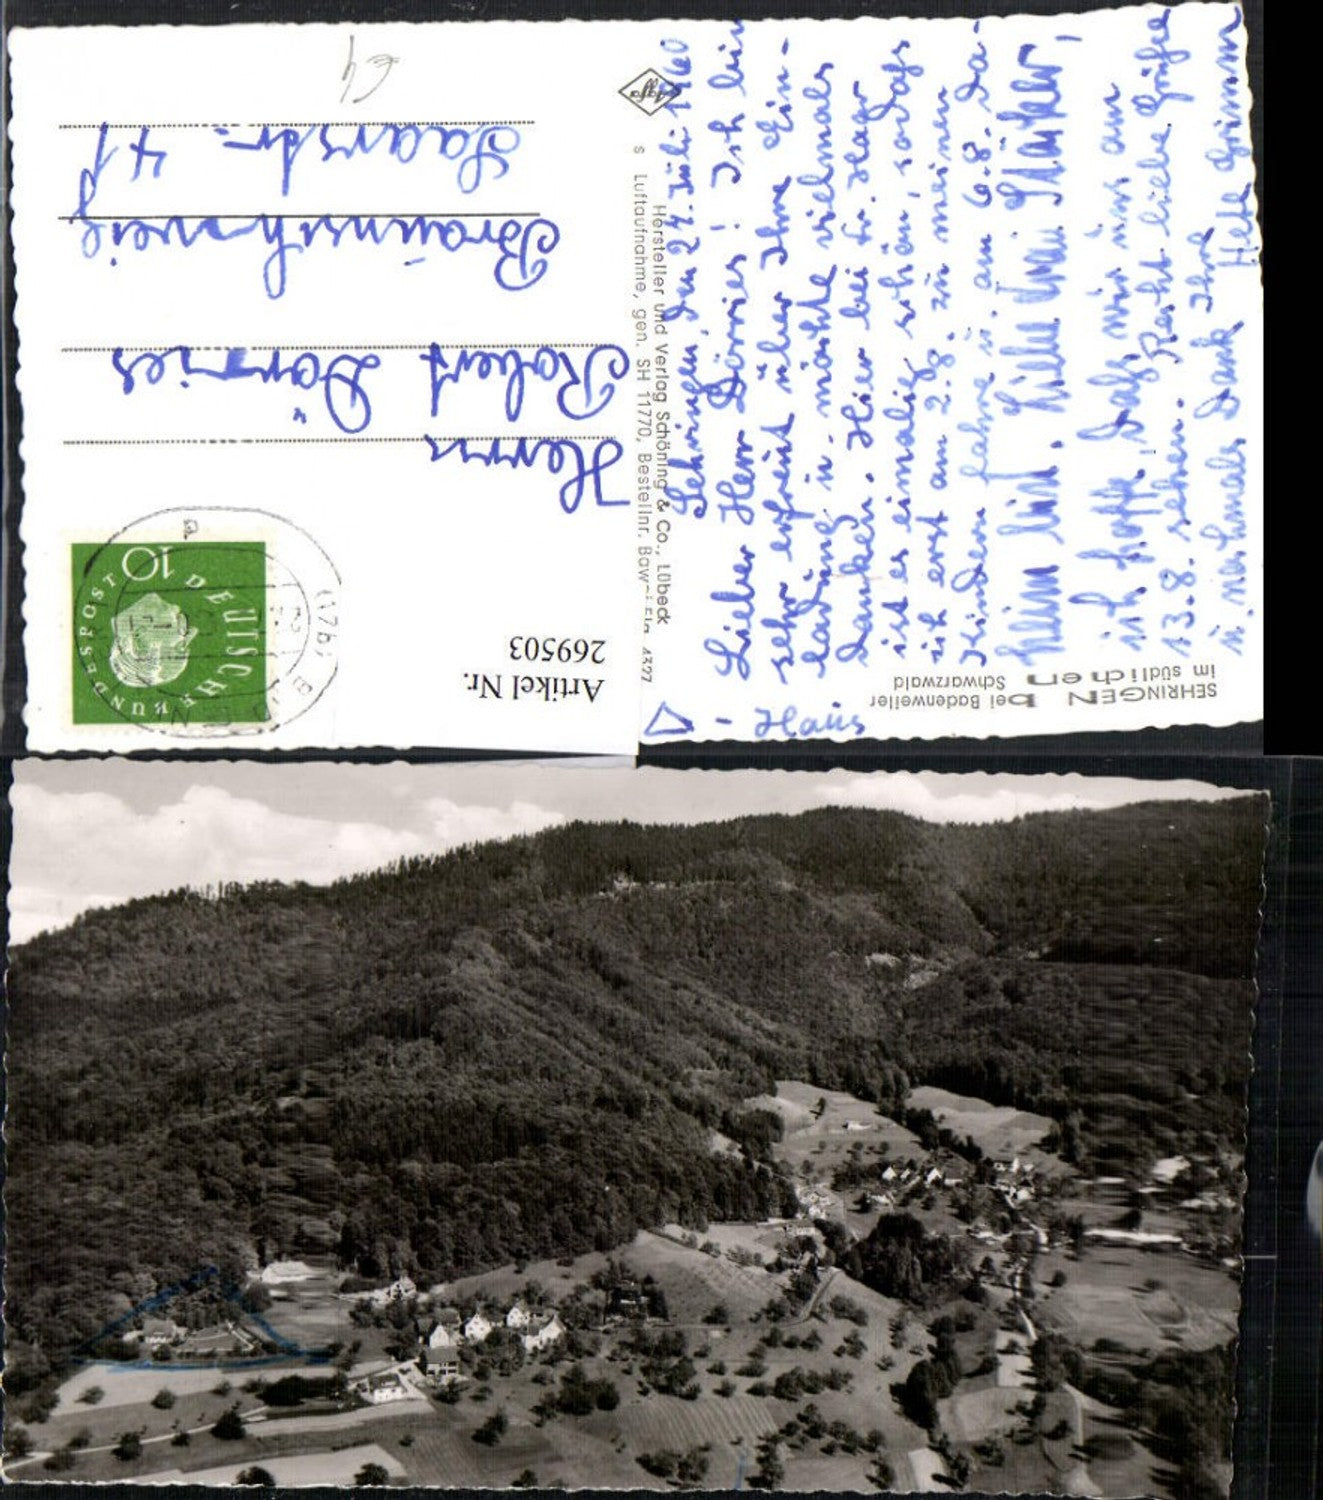 SEHRINGEN bei Badenweiler
im südlichen Schwarzwald
△ - Haus
Sehringen, den 27. Juli 1960
Lieber Herr Dörries! Ich bin
sehr erfreut über Ihre Ein-
ladung u. möchte vielmals
danken. Hier bei Fr. Haar
ist es einmalig schön, sodaß
ich erst am 2.8. zu meinen
Kindern fahre u. am 6.8. da-
heim bin.
ich hoffe, daß wir uns am
13.8. sehen. Recht liebe Grüße
u. nochmals Dank Ihre
Hete Grimm
Agfa
Hersteller und Verlag Schöning & Co., Lübeck
S Luftaufnahme, gen. SH 11770, Bestellnr. Baw
4327
DEUTSCHE BUNDESPOST
10
(17b)
a
Artikel Nr.
269503
Herrn
Robert Dörries
Braunschweig
Saarstr. 41